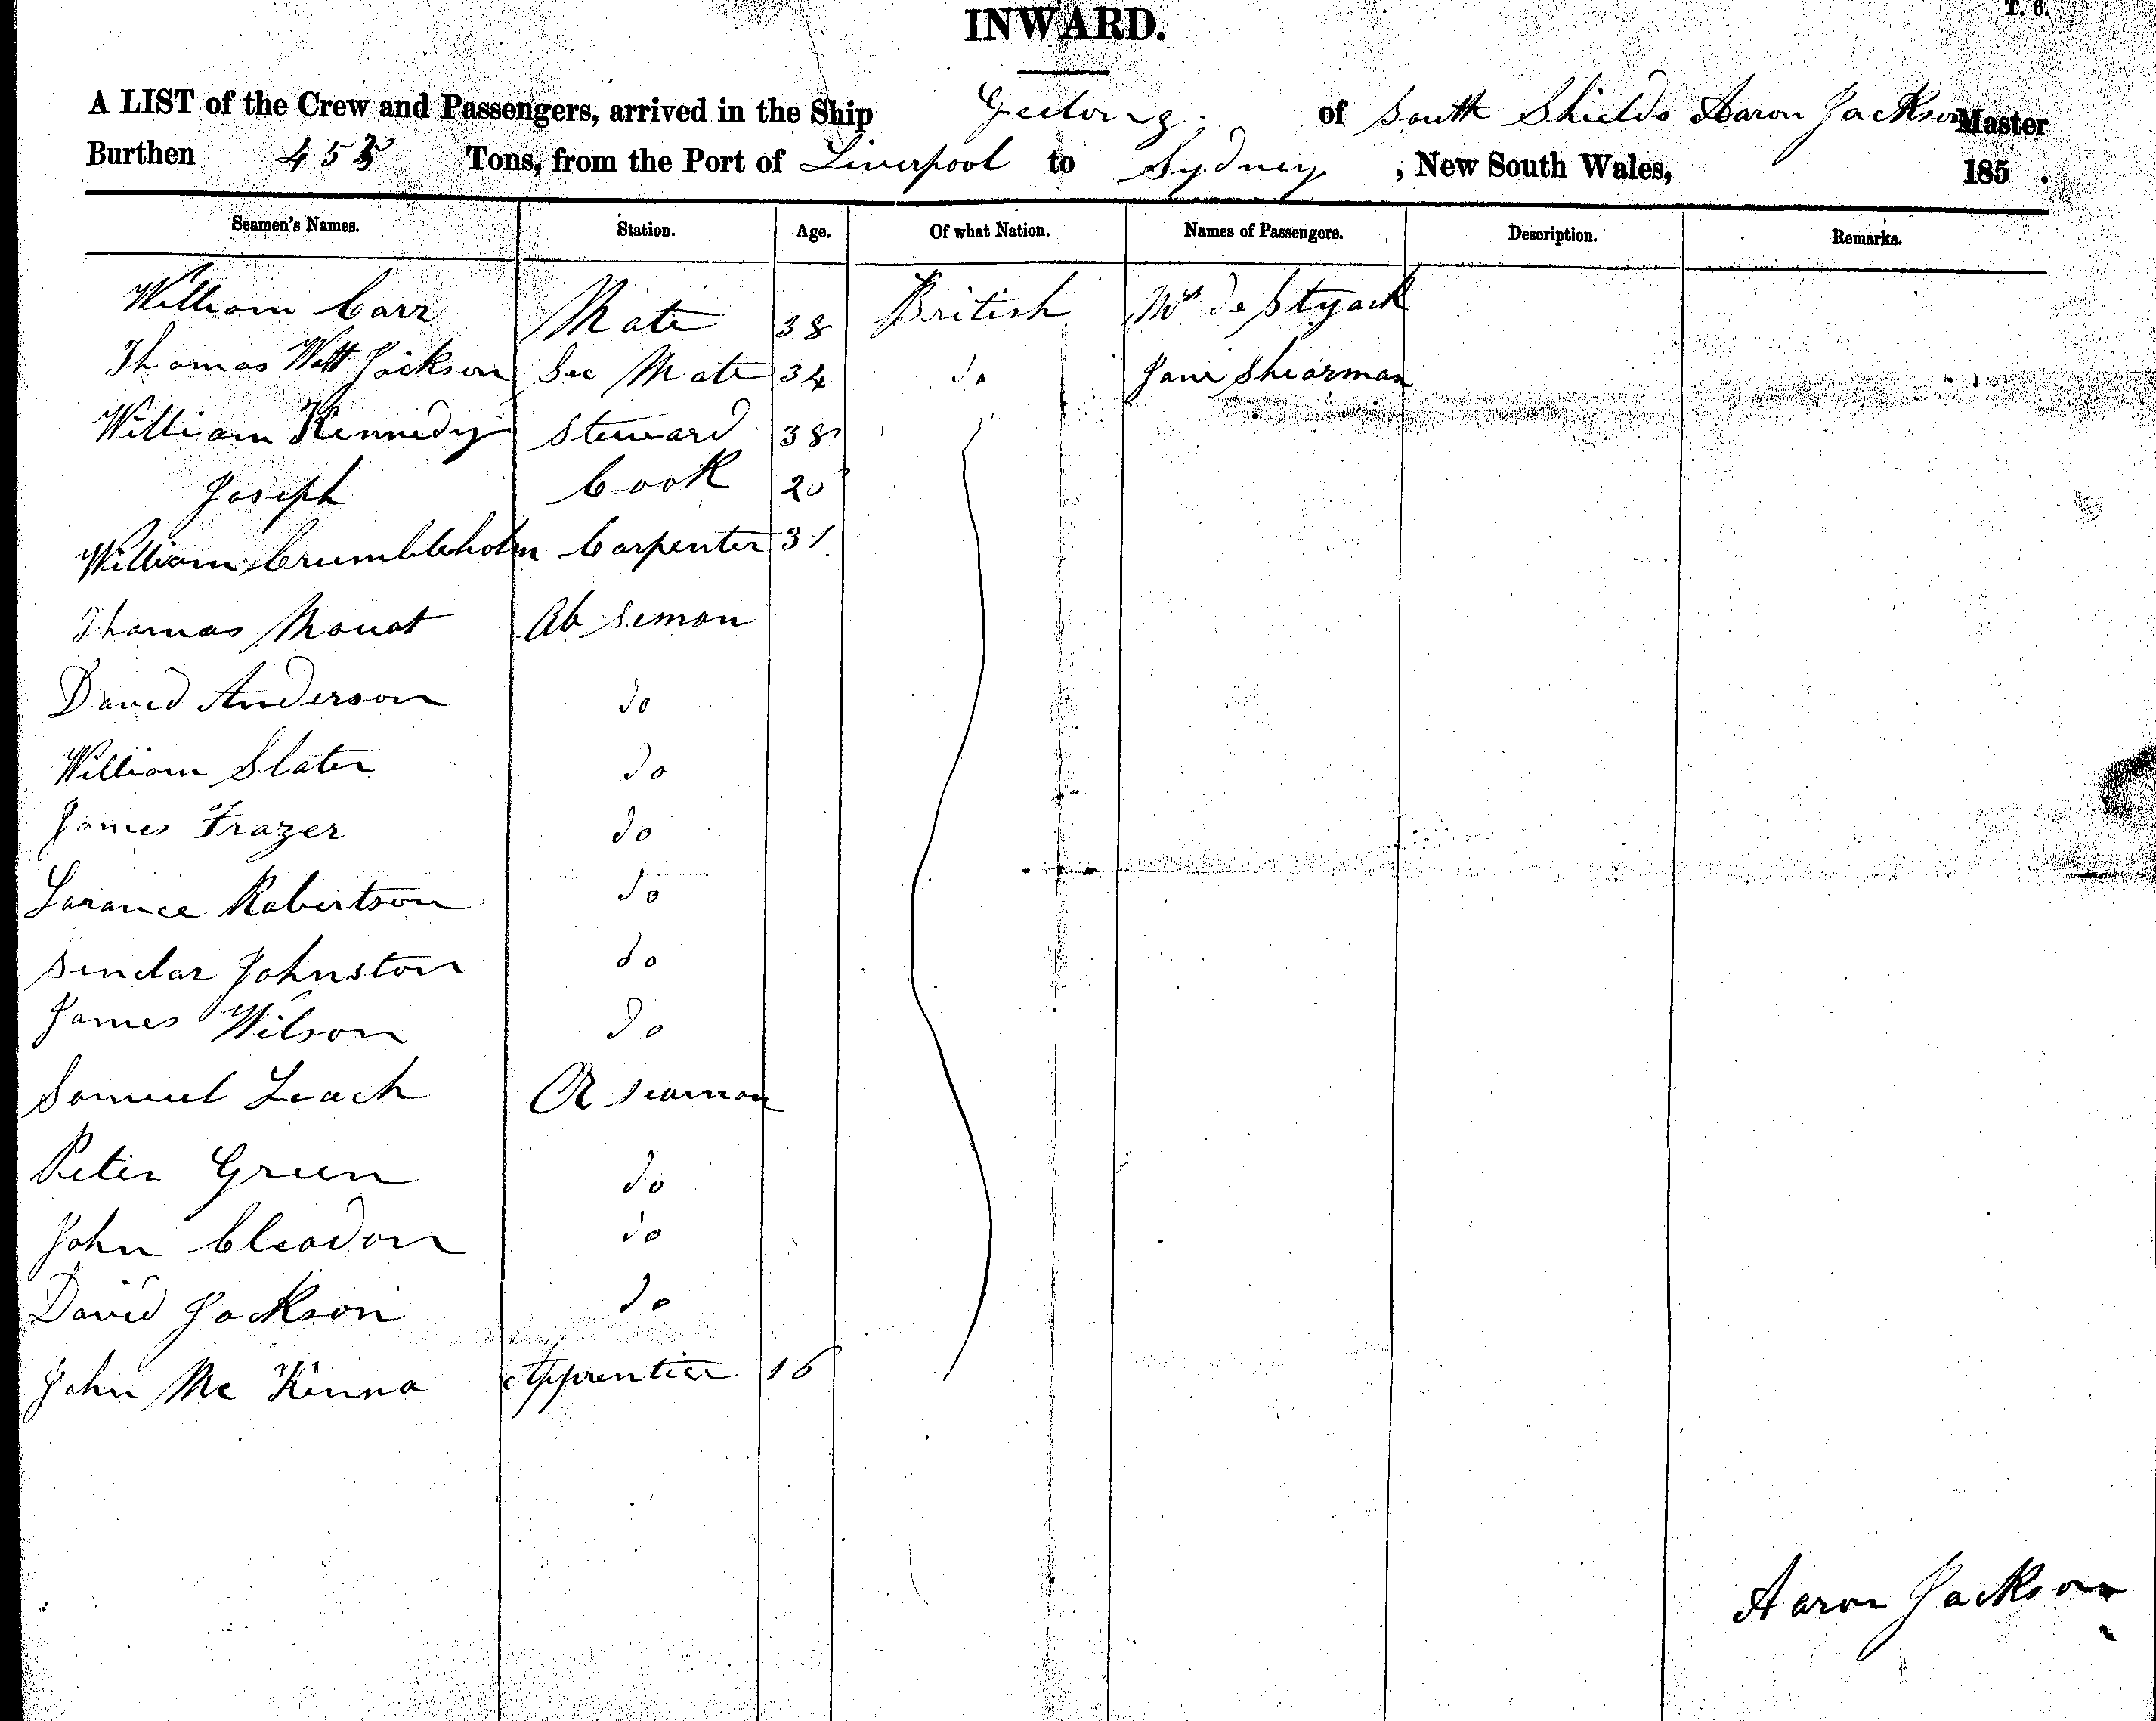 T. 6.
INWARD.
A LIST of the Crew and Passengers, arrived in the Ship Geelong. of South Shields Aaron Jackson Master
Burthen Tons, from the Port of Liverpool to Sydney, New South Wales, 185 .
Seamen's Names. Station. Age. Of what Nation. Names of Passengers. Description. Remarks.
William Carr Mate 38 British de Styack
Thomas Watt Jackson Sec Mate 34 do Jane Shearman
William Kennedy Steward 38
Joseph Cook 20
William Crumbleholm Carpenter 31
Thomas Mouat Ab Seman
David Anderson do
William Slater do
James Frazer do
Larance Robertson do
Sinclar Johnston do
James Wilson do
Samuel Leach seaman
Peter Green do
John Cleadon do
David Jackson do
John Mc Kenna Apprentice 16
Aaron Jackson